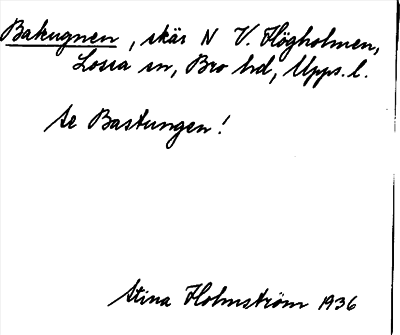 Bakugnen, skär N V. Högholmen,
Lossa sn, Bro hd, Upps. l.
se Bastungen!
Stina Holmström 1936